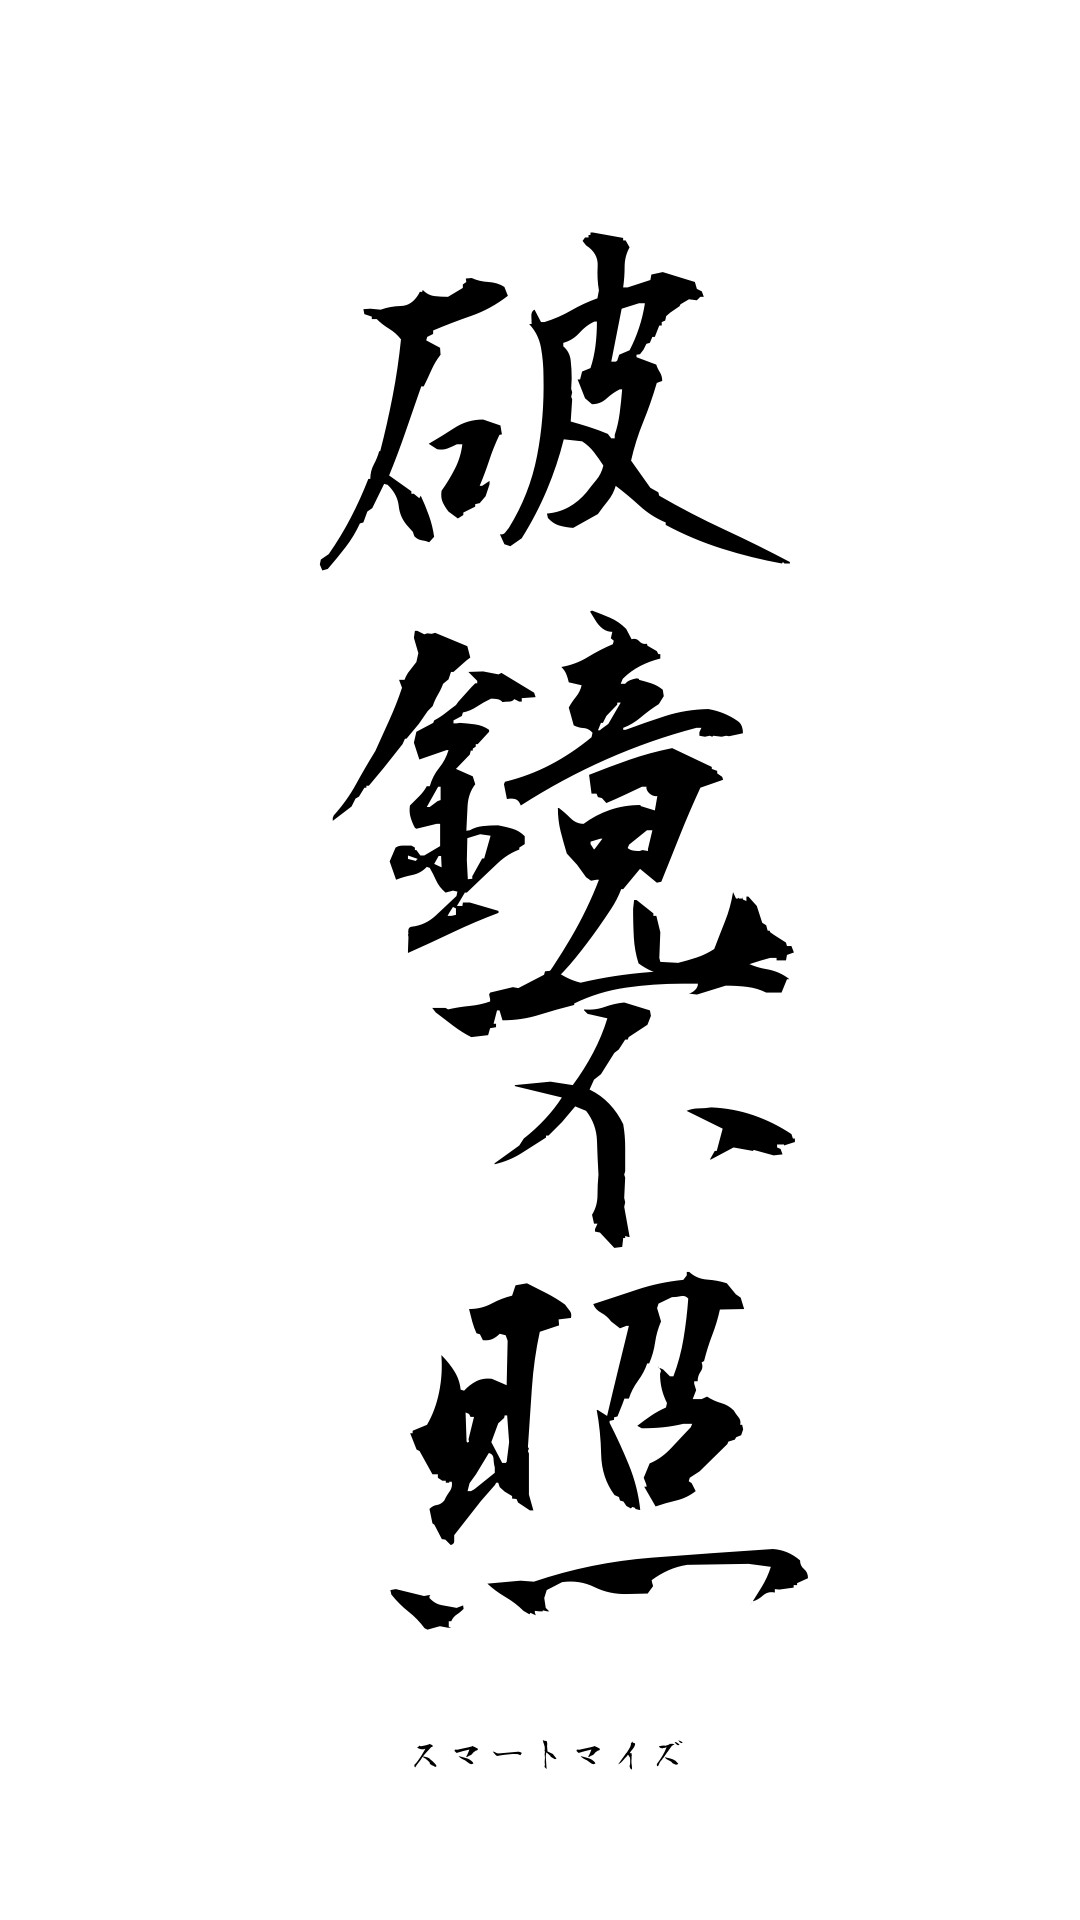 破鏡不照
スマートマイズ